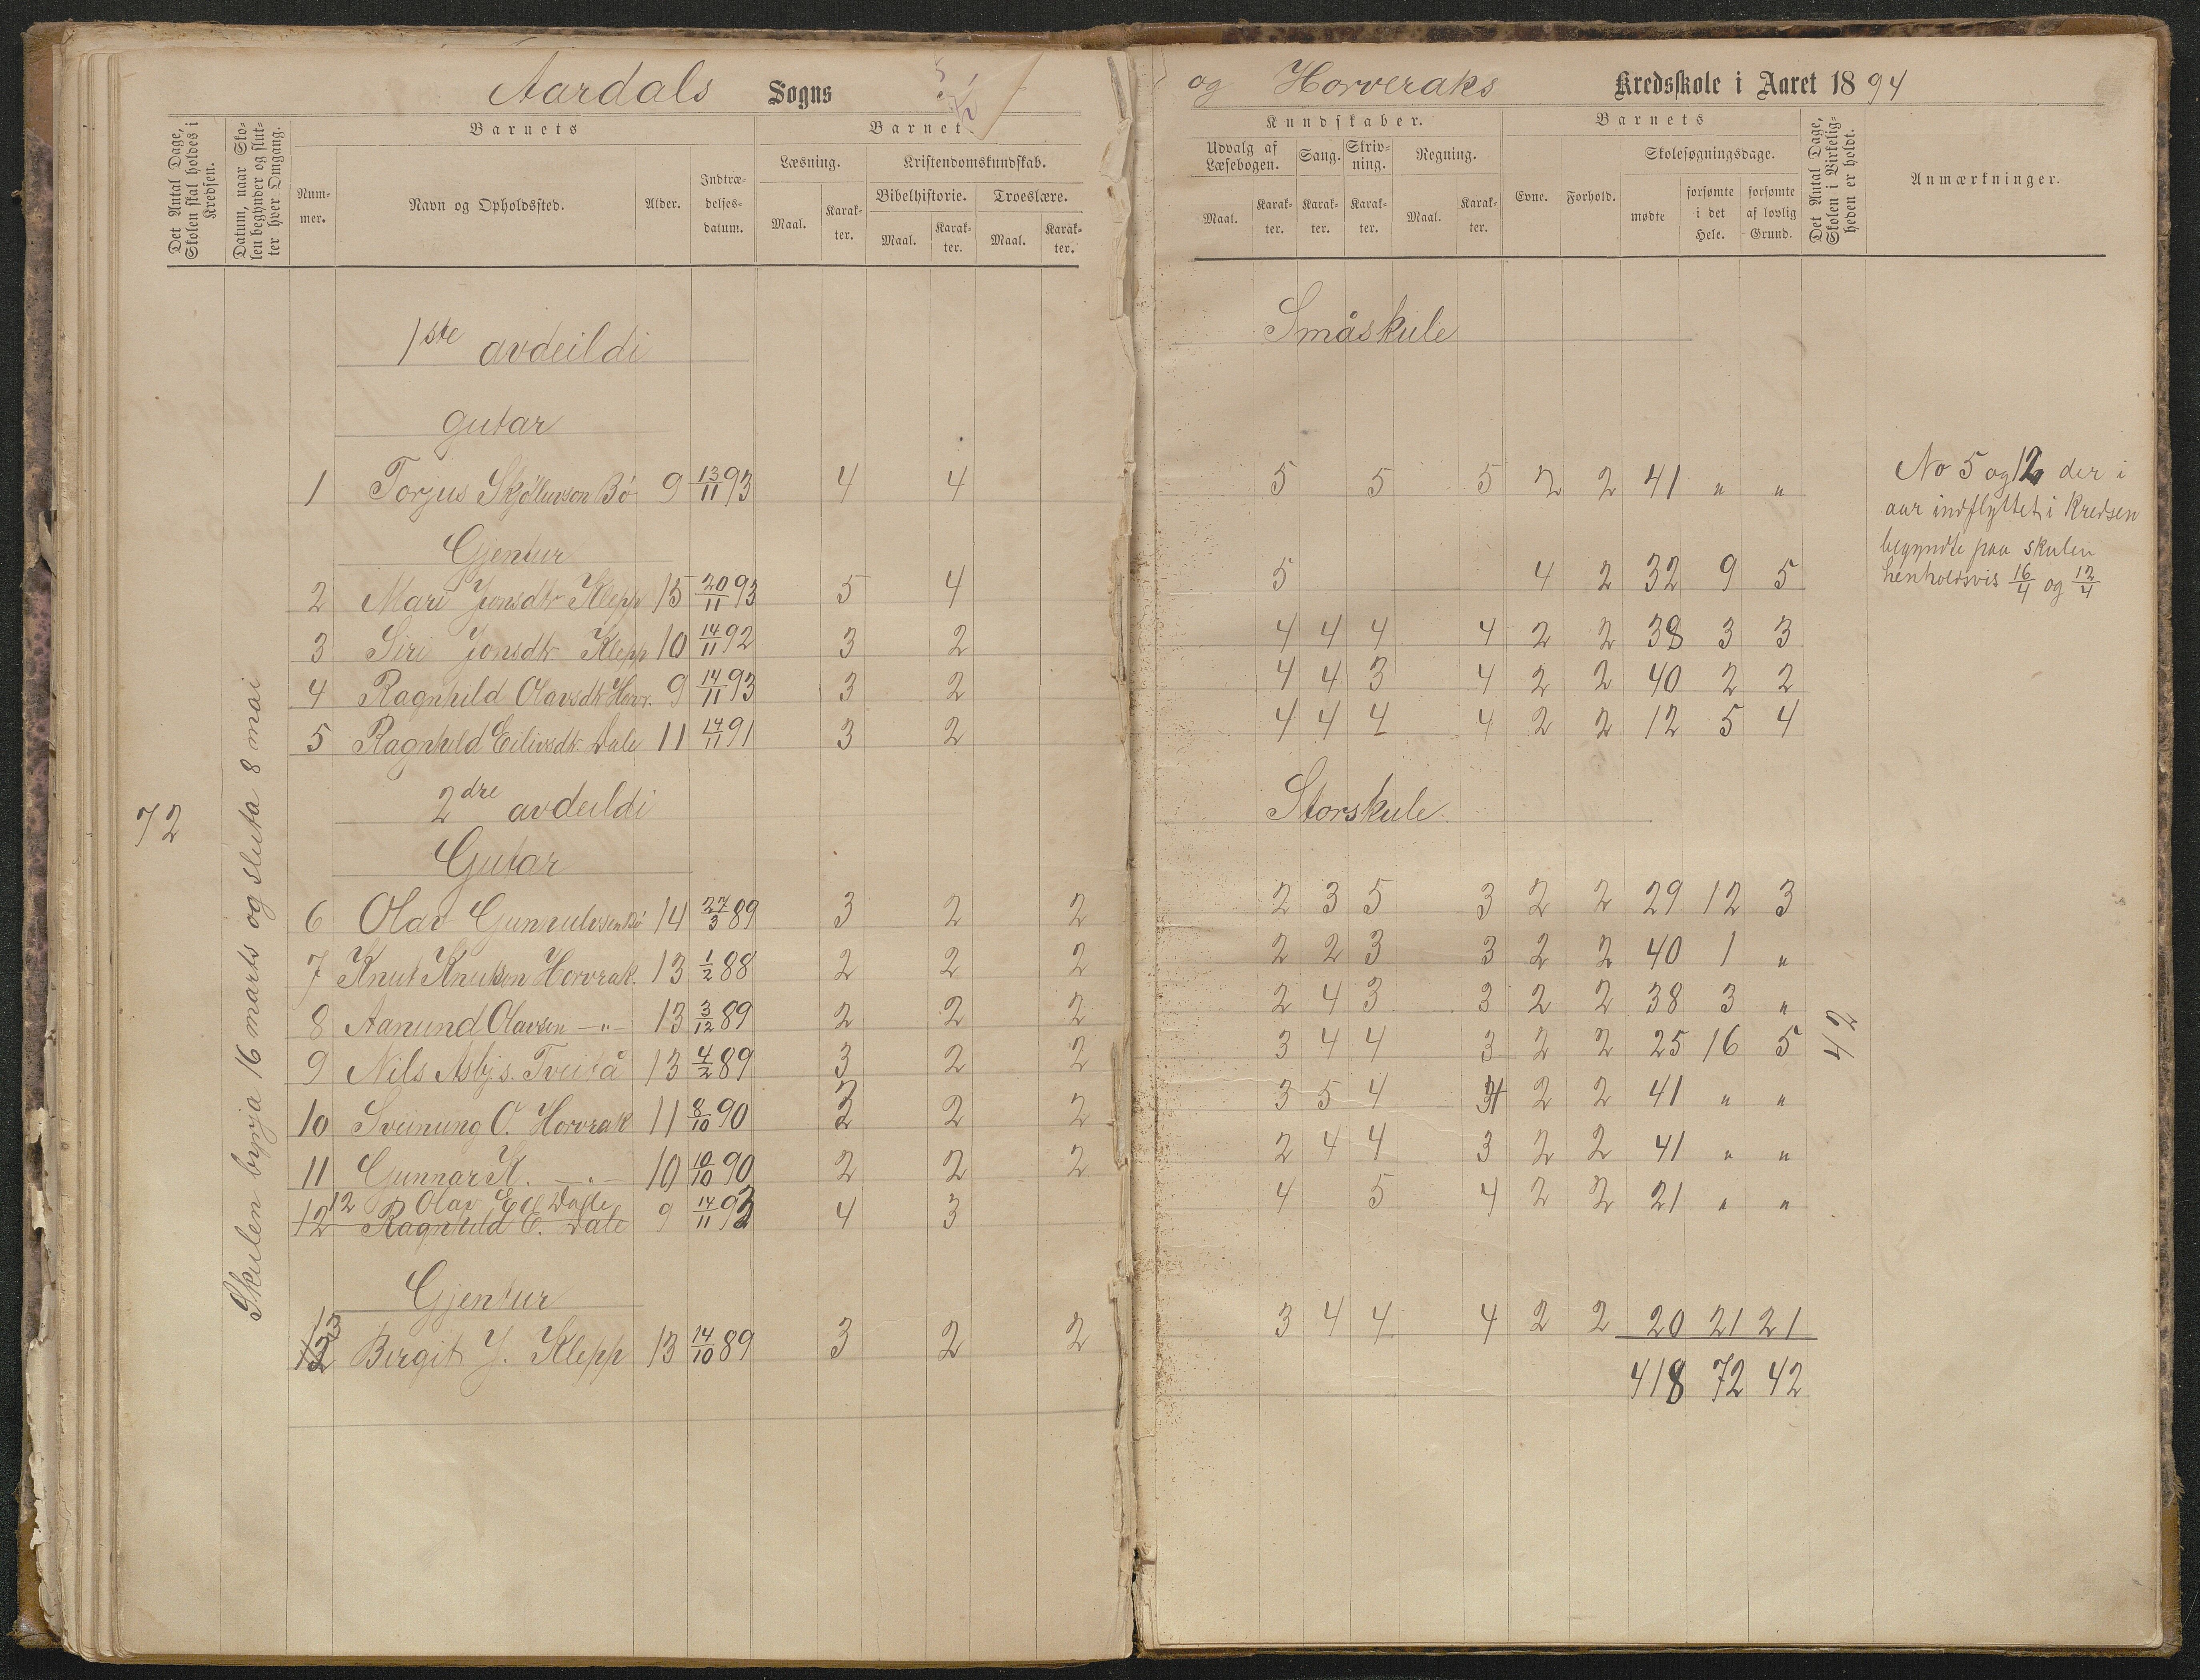 Aardals Sogns
og Horveraks Kredsskole i Aaret 1894
Det Antal Dage, Skolen skal holdes i Kredsen.
Datum, naar Skolen begynder og slutter hver Omgang.
Barnets
Nummer.
Navn og Opholdssted.
Alder.
Indtrædelsesdatum.
Barnets
Læsning.
Maal.
Karakter.
Kristendomskundskab.
Bibelhistorie.
Maal.
Karakter.
Troeslære.
Maal.
Karakter.
Kundskaber.
Udvalg af Læsebogen.
Maal.
Karakter.
Sang.
Karakter.
Skrivning.
Karakter.
Regning.
Maal.
Karakter.
Barnets
Evne.
Forhold.
Skolesøgningsdage.
mødte
forsømte i det Hele.
forsømte af lovlig Grund.
Det Antal Dage, Skolen i Virkeligheden er holdt.
Anmærkninger.
1ste avdeildi Småskule
gutar
1 Torjus Skjølunson Bø 9 13/11 93 4 4 5 5 5 2 2 41 " "
Gjentur
2 Mari Jonsdtr Klepp 15 20/11 93 5 4 5 4 2 32 9 5
3 Siri Jonsdtr Klepp 10 14/11 92 3 2 4 4 4 4 2 2 38 3 3
4 Ragnhild Olavsdtr Horv. 9 14/11 93 3 2 4 4 3 4 2 2 40 2 2
5 Ragnhild Eilivsdtr Dale 11 14/11 91 3 2 4 4 4 4 2 2 12 5 4
2dre avdeildi Storskule
Gutar
6 Olav Gunnulvsen Bø 14 27/3 89 3 2 2 2 3 5 3 2 2 29 12 3
7 Knut Knutsen Horvrak. 13 1/2 88 2 2 2 2 2 3 3 2 2 40 1 "
8 Aanund Olavsen — " — 13 3/12 89 2 2 2 2 4 3 3 2 2 38 3 "
9 Nils Asbj.s. Tveitå 13 4/2 89 3 2 2 3 4 4 3 2 2 25 16 5
10 Sveinung O. Horvrak 11 8/10 90 2 2 2 3 5 4 4 2 2 41 " "
11 Gunnar K. — " — 10 10/10 90 2 2 2 2 4 4 3 2 2 41 " "
12 Olav E Dale
12 Ragnhild E. Dale 9 14/11 93 4 3 4 5 4 2 2 21 " "
Gjentur
13 Birgit J. Klepp 13 14/10 89 3 2 2 3 4 4 4 2 2 20 21 21
418 72 42
72
Skulen byrja 16 marts og sluta 8 mai
42
No 5 og 12 der i
aar indflyttet i Kredsen
begyndte paa skulen
henholdsvis 16/4 og 12/4